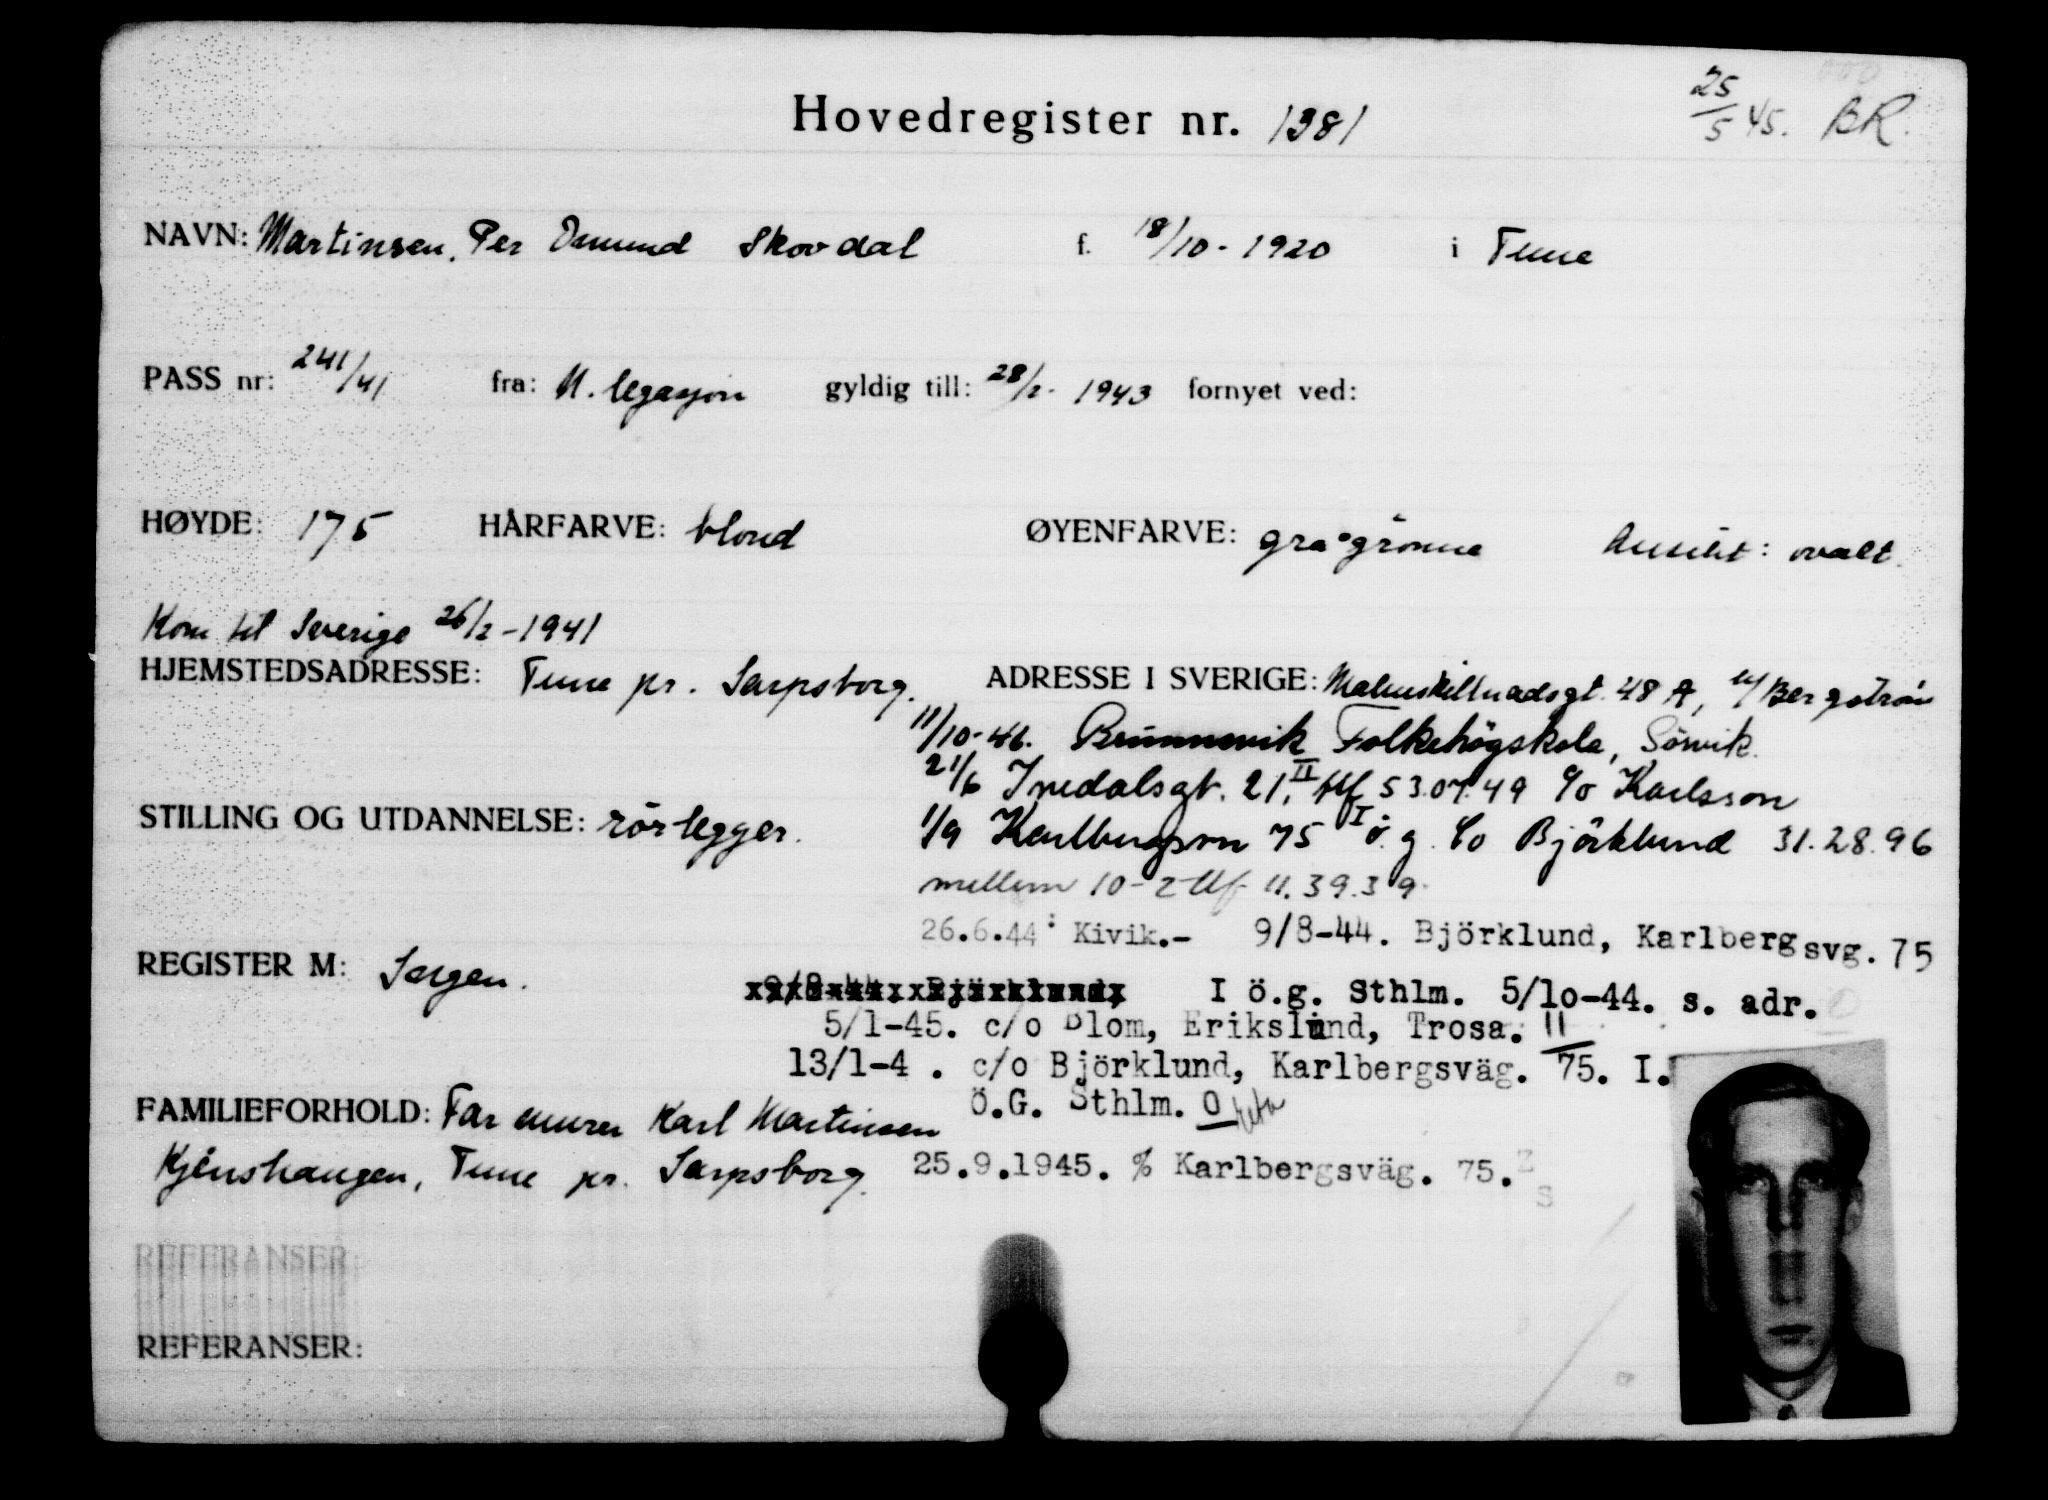 Hovedregister nr. 1381
25/5 45. BR.
NAVN: Martinsen, Per Osmund Skovdal f. 18/10-1920 i Tune
PASS nr: 241/41 fra: N. legasjon gyldig till: 28/2-1943 fornyet ved:
HØYDE: 175 HÅRFARVE: blond ØYENFARVE: grågrønne Ansikt: ovalt.
Kom til Sverige 26/2-1941
HJEMSTEDSADRESSE: Tune pr. Sarpsborg. ADRESSE I SVERIGE: Malmskillnadsgt. 48 A, Bergström
11/10-41. Brunnsvik Folkehögskola, Sörvik.
21/6 Inedalsgt. 21, II tlf 53.07.49 c/o Karlsson
STILLING OG UTDANNELSE: rörlegger. 1/9 Karlbergsvn 75 I ö.g. c/o Björklund 31.28.96
mellem 10-2 tlf 11.39.39.
26.6.44: Kivik.- 9/8-44. Björklund, Karlbergsvg. 75
REGISTER M: Sorgen. I ö.g. Sthlm. 5/10-44. s. adr.
5/1-45. c/o Blom, Erikslund, Trosa. II
13/1-4 . c/o Björklund, Karlbergsväg. 75. I.
FAMILIEFORHOLD: Far murer Karl Martinsen Ö.G. Sthlm. O
Kjenshaugen, Tune pr. Sarpsborg. 25.9.1945. % Karlbergsväg. 75.
REFERANSER:
REFERANSER: